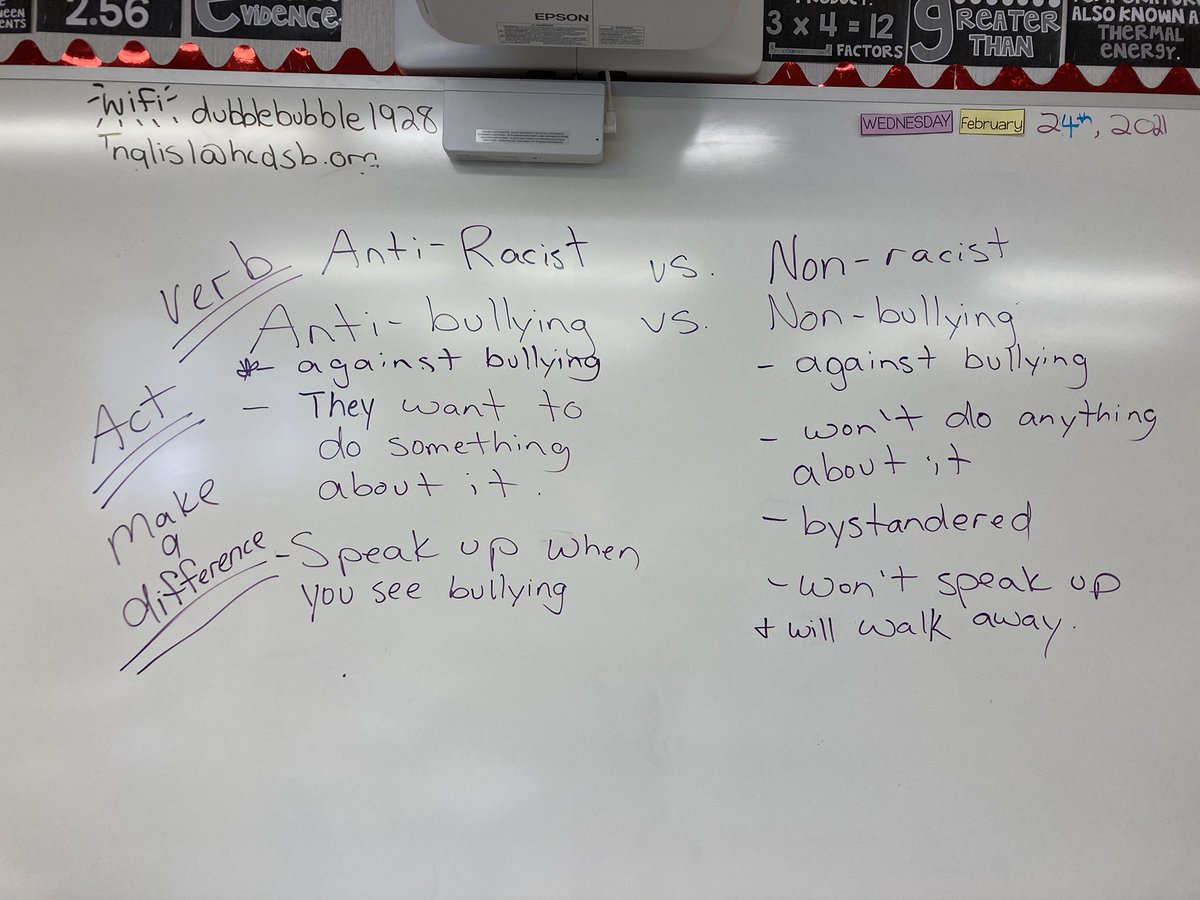 2.56
EVIDENCE
EPSON
3 x 4 = 12
FACTORS
GREATER
THAN
ALSO KNOWN A
THERMAL
ENERGY.
wifi dubblebubble1928
WEDNESDAY February 24th, 2021
Verb Anti-Racist vs. Non-racist
Anti-bullying vs. Non-bullying
* against bullying
- They want to
do something
about it.
- Speak up when
you see bullying
- against bullying
- won't do anything
about it
- bystandered
- won't speak up
+ will walk away.
Act
Make
a
difference